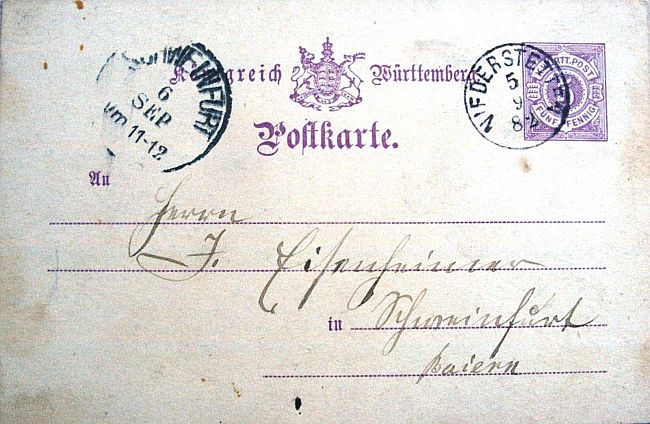 SCHWEINFURT
6
SEP
Vm 11-12
Königreich Württemberg
NIEDERSTETTEN
5
9
8-V
K. WÜRTT. POST
FÜNF PFENNIG
Postkarte.
An
Herrn
J. Eisenheimer
in Schweinfurt
Baiern